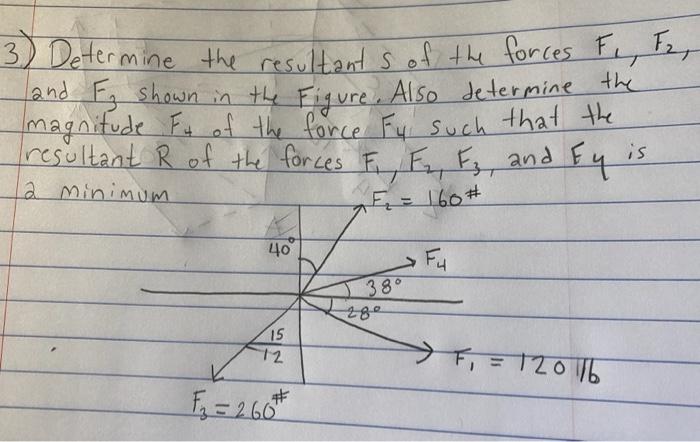 3) Determine the resultant s of the forces F₁, F₂,
and F₃ shown in the Figure. Also determine the
magnitude F₄ of the force F₄ such that the
resultant R of the forces F₁, F₂, F₃, and F₄ is
a minimum
F₂ = 160#
40°
F₄
38°
28°
15
12
F₁ = 120 lb
F₃ = 260#